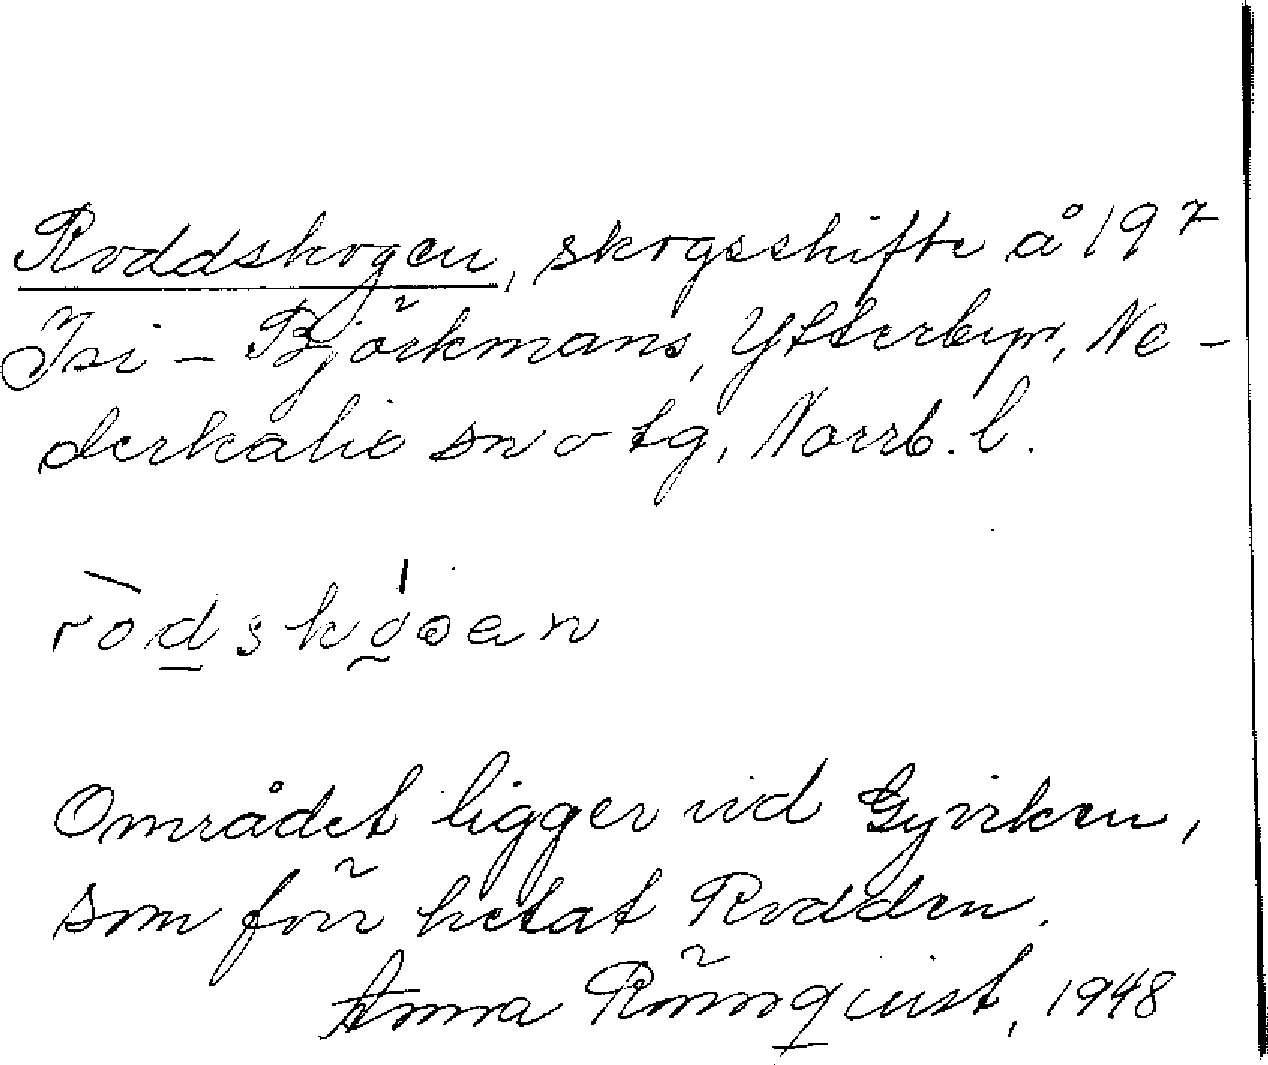 Roddskogen, skogsskifte å 19⁷
Isi - Björkmans, Ytterbyn, Ne-
derkalix sn o tg, Norrb. l.
Området ligger vid Gyviken,
som förr hetat Rodden.
Anna Rönnqvist, 1948